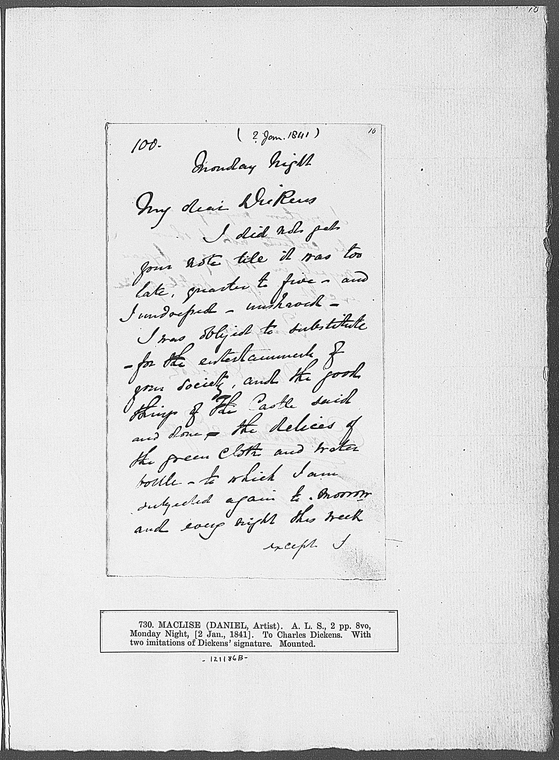 10
10
( 2 Jan. 1841 )
100.
Monday Night
My dear Dickens
I did not get
your note till it was too
late, quarter to five - and
I undressed - unshaved -
I was obliged to substitute
- for the entertainment of
your society, and the good
things of The Castle said
and done - the delices of
the green cloth and water
bottle - to which I am
subjected again to-morrow
and every night this week
except I
730. MACLISE (DANIEL, Artist). A. L. S., 2 pp. 8vo,
Monday Night, [2 Jan., 1841]. To Charles Dickens. With
two imitations of Dickens' signature. Mounted.
- 121186B -